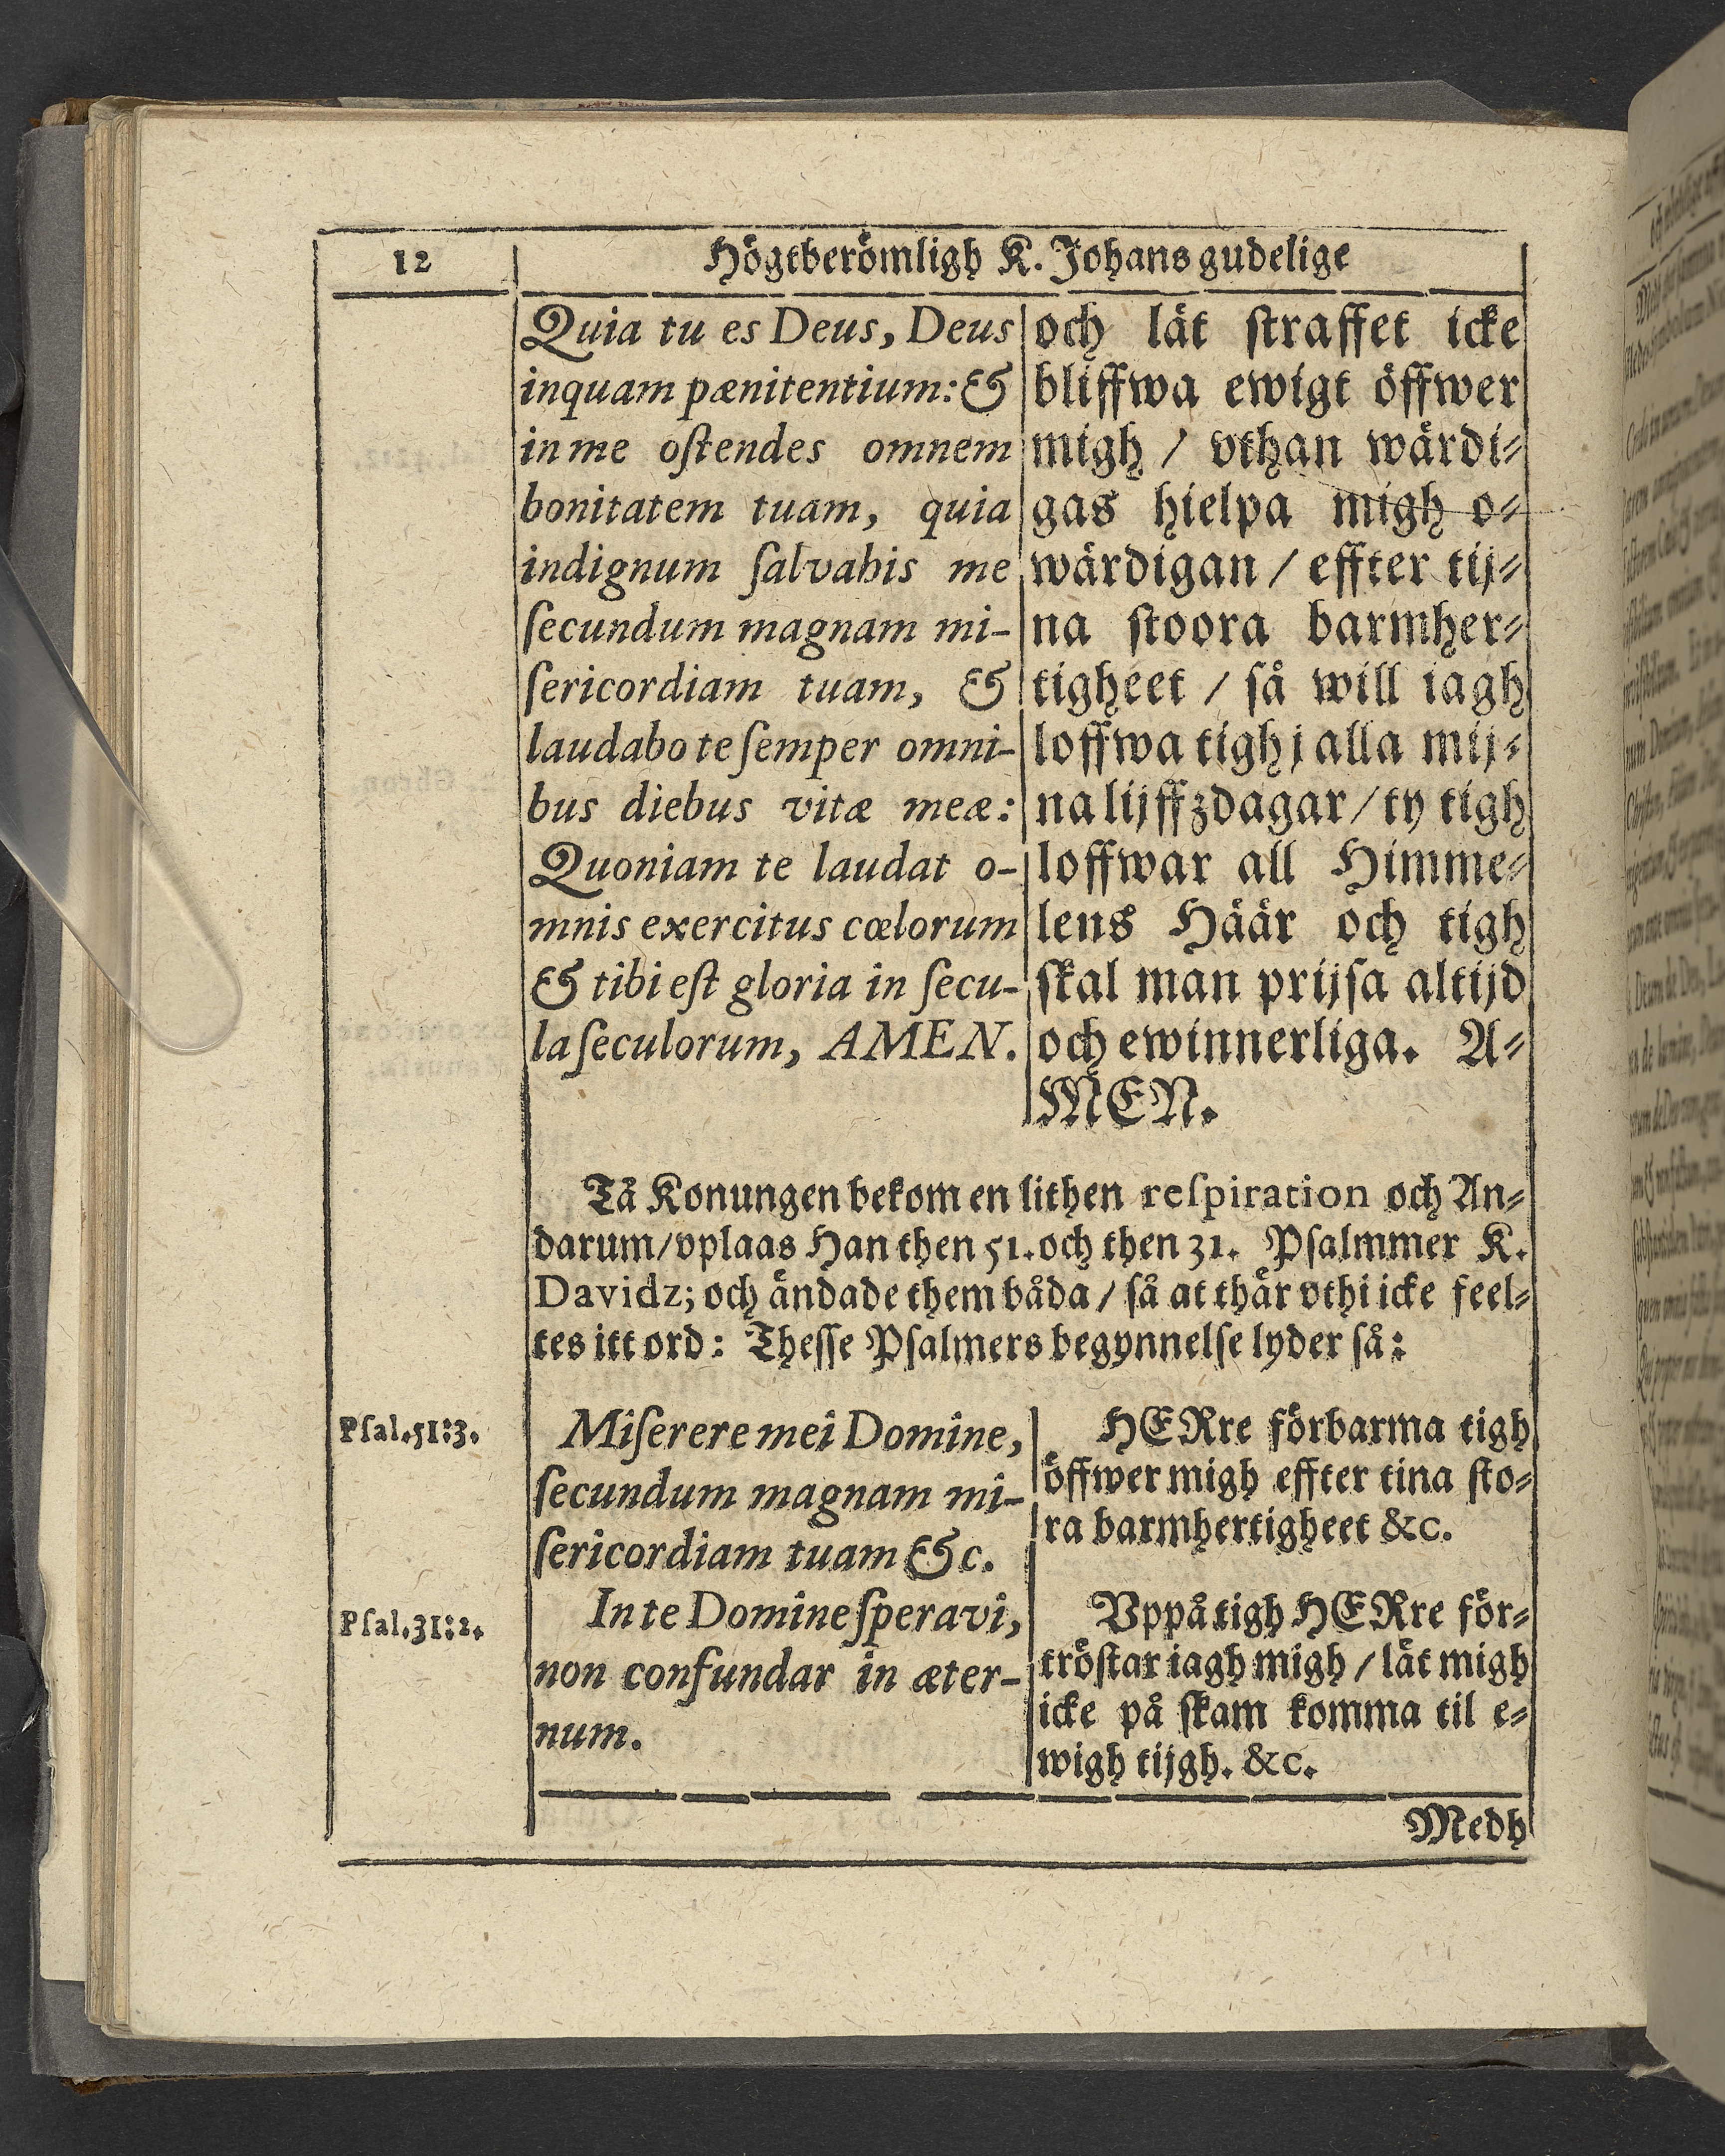 12
Högtberömligh K. Johans gudelige
Quia tu es Deus, Deus
inquam pænitentium: &
in me oſtendes omnem
bonitatem tuam, quia
indignum ſalvabis me
ſecundum magnam mi-
ſericordiam tuam, &
laudabo te ſemper omni-
bus diebus vitæ meæ:
Quoniam te laudat o-
mnis exercitus cœlorum
& tibi eſt gloria in ſecu-
la ſeculorum, AMEN.
och lät ſtraffet icke
bliffwa ewigt öffwer
migh / vthan wärdi-
gas hielpa migh o-
wärdigan / effter tij-
na ſtoora barmher-
tigheet / ſå will iagh
loffwa tigh j alla mij-
na lijffzdagar / ty tigh
loffwar all Himme-
lens Häär och tigh
ſkal man prijſa altijd
och ewinnerliga. A-
MEN.
Tå Konungen bekom en lithen reſpiration och An-
darum / vplaas Han then 51. och then 31. Pſalmmer K.
Davidz; och ändade them båda / ſå at thär vthi icke feel-
tes itt ord: Theſſe Pſalmers begynnelſe lyder ſå:
Pſal. 51:3.
Miſerere mei Domine,
ſecundum magnam mi-
ſericordiam tuam &c.
HERre förbarma tigh
öffwer migh effter tina ſto-
ra barmhertigheet &c.
Pſal. 31:2.
In te Domine ſperavi,
non confundar in æter-
num.
Vppå tigh HERre för-
tröſtar iagh migh / lät migh
icke på ſkam komma til e-
wigh tijgh. &c.
Medh